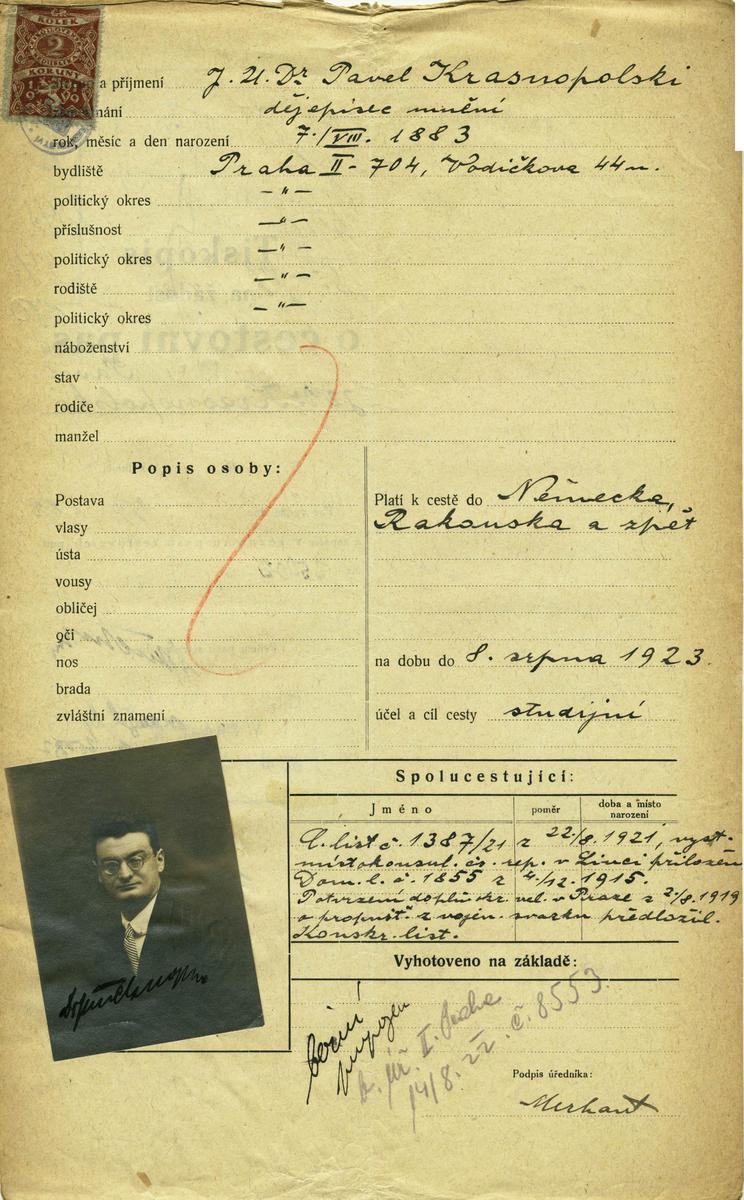 KOLEK
2
KORUNY
a příjmení J. U. Dr Pavel Krasnopolski
nání dějepisec umění
rok, měsíc a den narození 7./VIII. 1883
bydliště Praha II - 704, Vodičkova 44 n.
politický okres — " —
příslušnost — " —
politický okres — " —
rodiště — " —
politický okres — " —
náboženství
stav
rodiče
manžel
Popis osoby:
Postava
vlasy
ústa
vousy
obličej
oči
nos
brada
zvláštní znamení
Platí k cestě do Německa,
Rakouska a zpět
na dobu do 8. srpna 1923.
účel a cíl cesty studijní
Spolucestující:
Jméno poměr doba a místo narození
C. list č. 1387/21 z 22./8. 1921, vyst.
místokonsul. čs. rep. v Linci přiložen
Dom. l. č. 1855 z 4./12. 1915.
Potvrzení doplň. okr. vel. v Praze z 2./8. 1919
o propušt. z vojen. svazku předložil.
Konskr. list.
Vyhotoveno na základě:
II. Praha
14/8. 22. č. 8553.
Podpis úředníka: